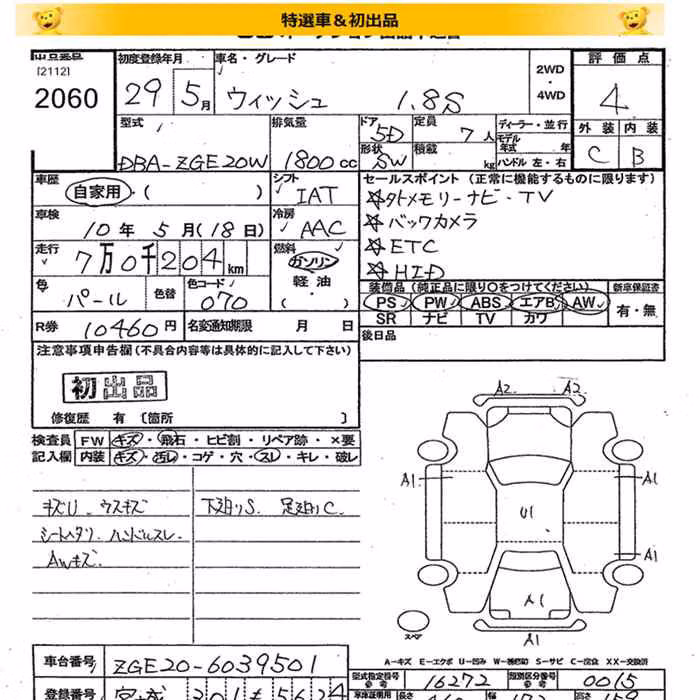 特選車＆初出品
出品番号
[2112]
2060
初度登録年月
29 5月
車名・グレード
ウィッシュ 1.8S
2WD
・
4WD
評価点
4
外装 内装
C B
型式
DBA-ZGE20W
排気量
1800cc
ドア
5D
形状
SW
定員
7人
積載
kg
ディーラー・並行
モデル年式 年
ハンドル 左・右
車歴
自家用・( )
シフト
IAT
車検
10年5月(18日)
冷房
AAC
走行
7万0千204km
燃料
ガソリン
軽油
( )
色
パール
色替
色コード
070
R券 10460円
名変通知期限 月 日
セールスポイント (正常に機能するものに限ります)
☆外メモリーナビ・TV
☆バックカメラ
☆ETC
☆HID
装備品 (純正品に限り〇をつけてください)
新車保証書
PS PW ABS エアB AW
SR ナビ TV カワ
有・無
後日品
注意事項申告欄 (不具合内容等は具体的に記入して下さい)
初出品
修復歴 有 〔箇所 〕
検査員 FW キズ・飛石・ヒビ割・リペア跡・×要
記入欄 内装 キズ・汚レ・コゲ・穴・スレ・キレ・破レ
キズU ウスキズ
シートヘタリ ハンドルスレ
AWキズ
下廻りS 足廻りC
A2 A2
A1 A1
U1
A1
A1
A1
スペア
A-キズ E-エクボ U-凹み W-補修跡 S-サビ C-腐食 X-要交換 XX-交換済
車台番号 ZGE20-6039501
登録番号 宮城 301 も 5624
型式指定番号 16272
類別区分番号 0015